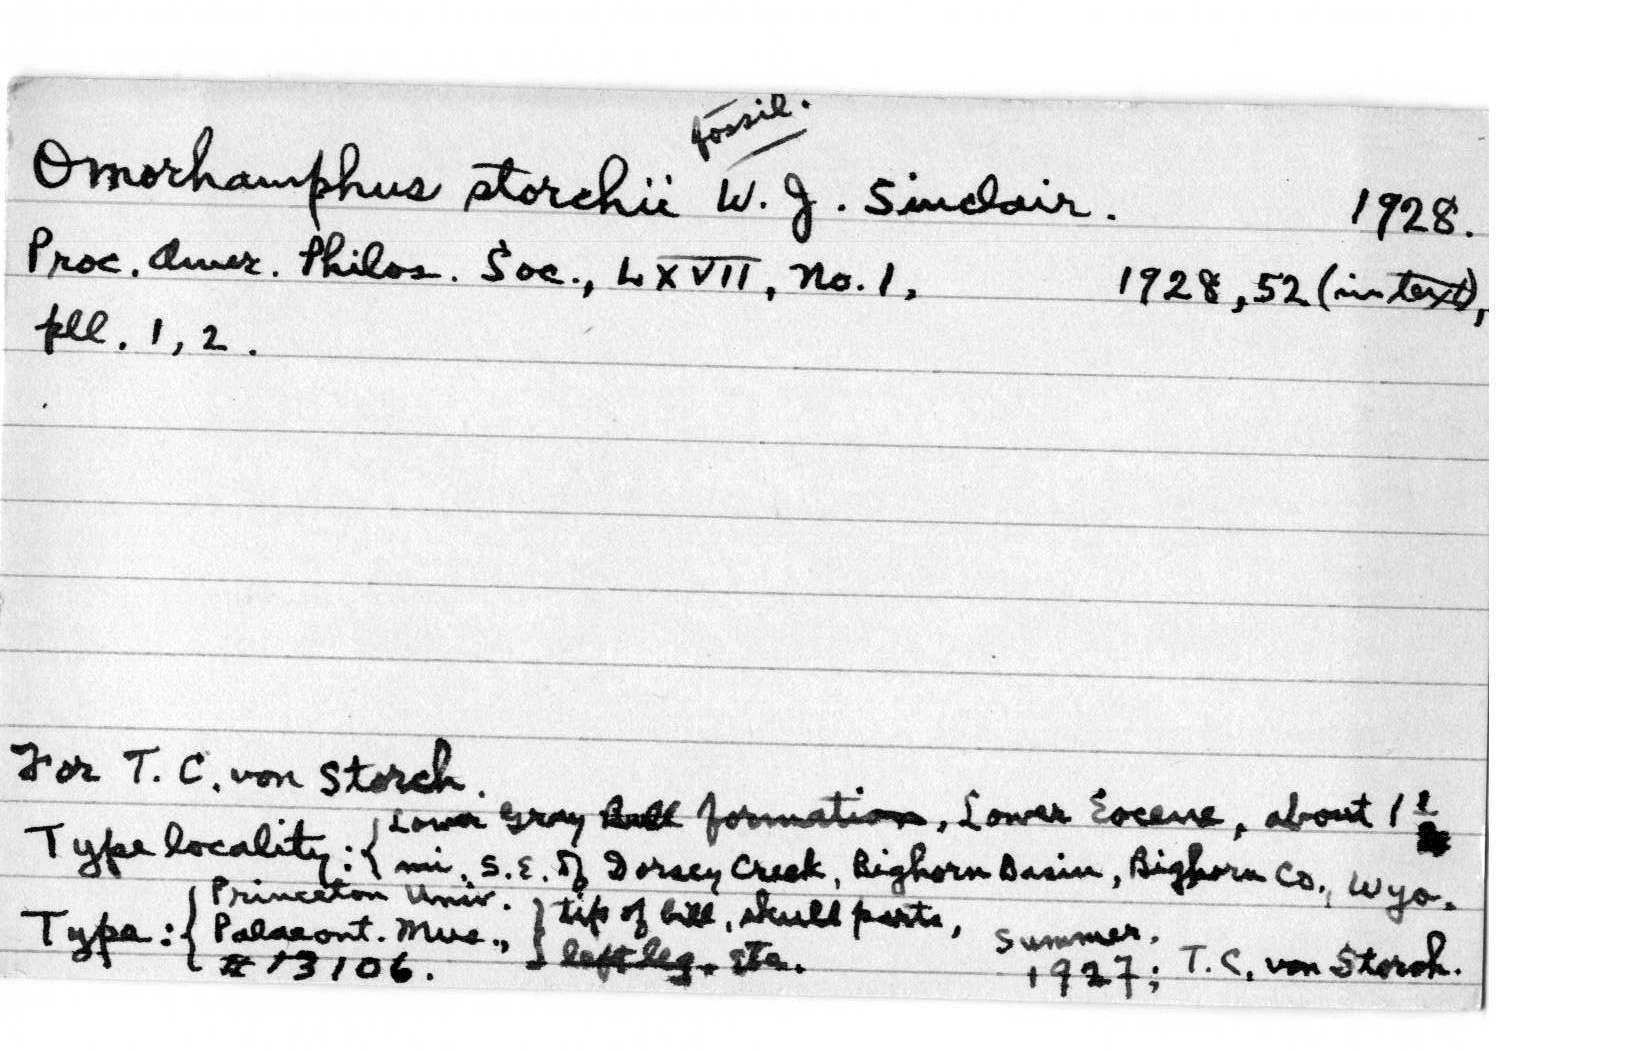 fossil.
Omorhamphus storchii W. J. Sinclair. 1928.
Proc. Amer. Philos. Soc., LXVII, No. 1, 1928, 52 (in text),
pll. 1, 2.
For T. C. von Storch.
Type locality: { Lower Gray Bull formation, Lower Eocene, about 1 1/2
mi. S.E. of Dorsey Creek, Bighorn Basin, Bighorn Co., Wyo.
Type: { Princeton Univ. Palaeont. Mus., # 13106. } tip of bill, skull parts, left leg, etc. Summer, 1927; T. C. von Storch.